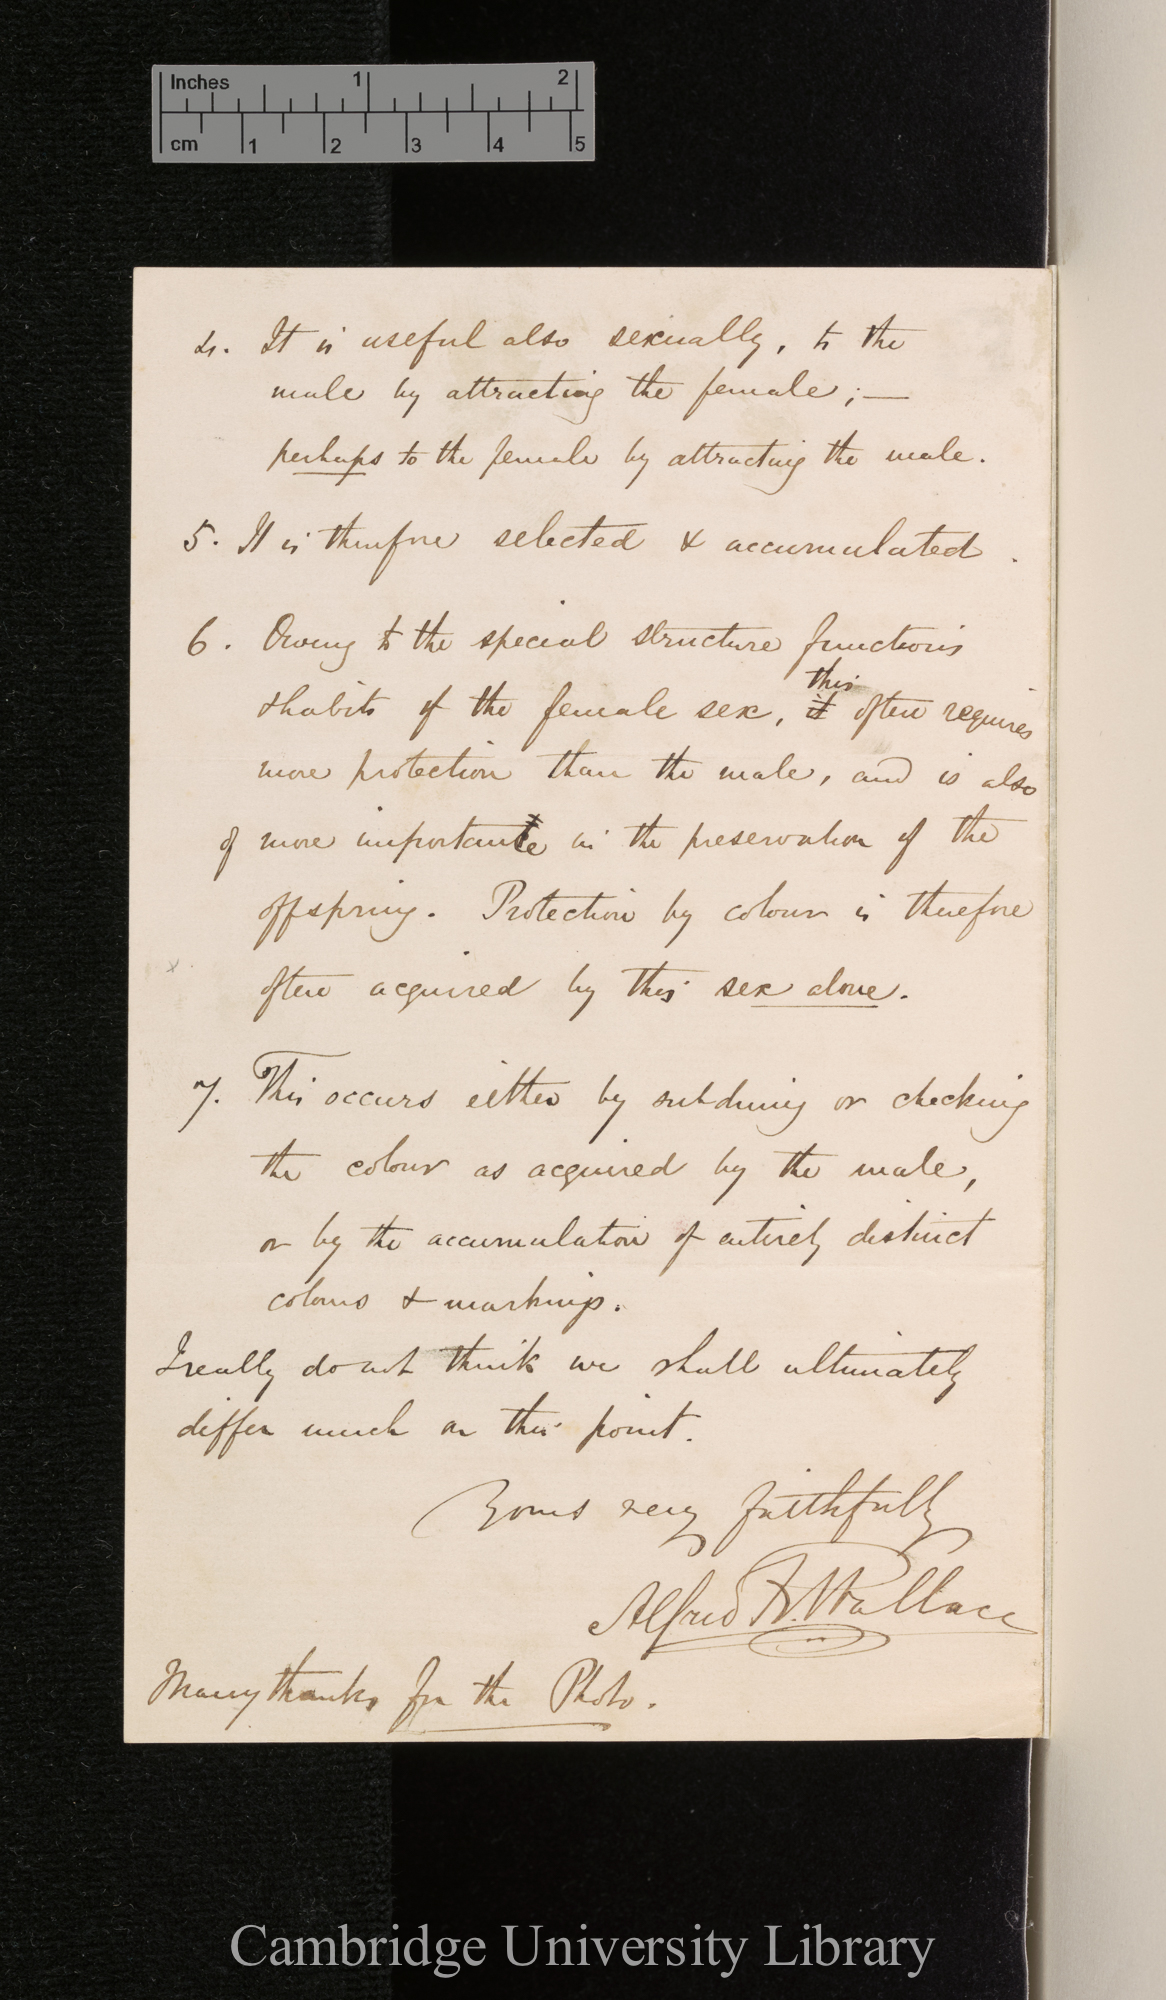 Inches 1 2
cm 1 2 3 4 5
4. It is useful also sexually, to the
male by attracting the female;—
perhaps to the female by attracting the male.
5. It is therefore selected & accumulated.
6. Owing to the special structure functions
& habits of the female sex, it this often requires
more protection than the male, and is also
of more importance in the preservation of the
offspring. Protection by colour is therefore
often acquired by this sex alone.
7. This occurs either by subduing or checking
the colour as acquired by the male,
or by the accumulation of entirely distinct
colours & markings.
I really do not think we shall ultimately
differ much on this point.
Yours very faithfully
Alfred R. Wallace
Many thanks for the Photo.
Cambridge University Library